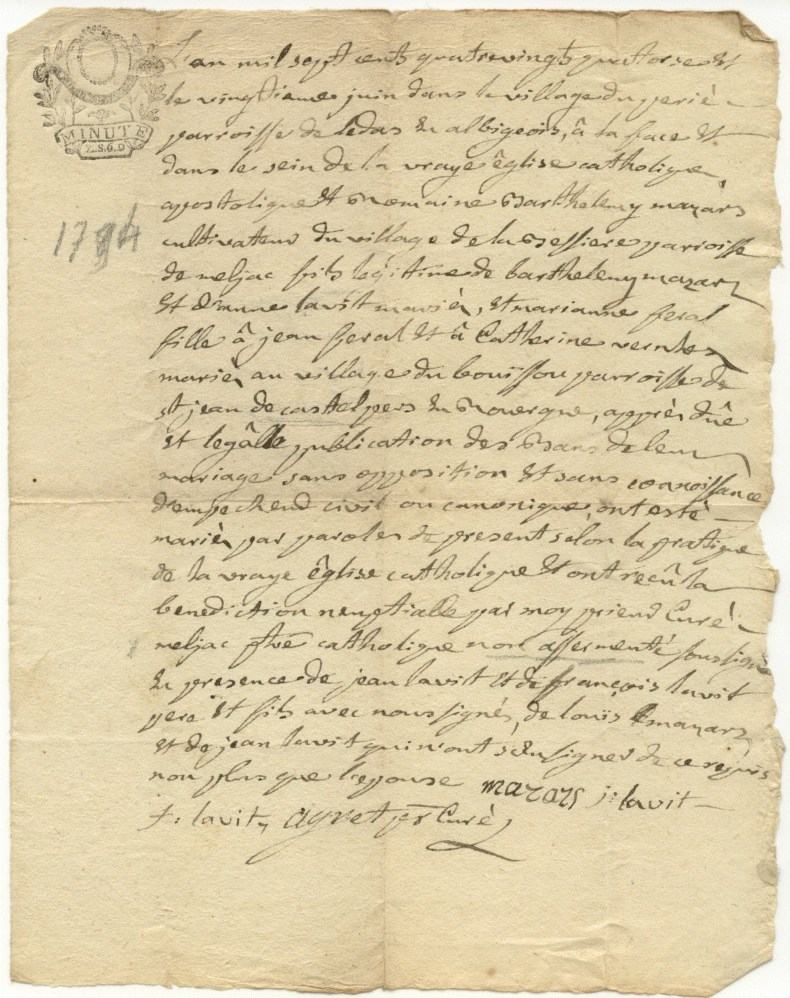 MINUTE
7.S.6.D
1794
L'an mil sept cents quatrevingts quatorse et
le vingtieme juin dans le village du perié
parroisse de ledas en albigeois, â la face et
dans le sein de la vraye êglise catholique,
apostolique et Romaine Barthelemy mazars
cultivateur du village de la Bessiere parroisse
de meljac fils légitime de barthelemy mazars
et d'anne lavit mariés, et marianne feral
fille â jean feral et â Catherine vernhes
mariés au village du bouïssou parroisse de
st jean de castelpers en Rouergue, apprés dûe
et legâlle publication des Bans de leur
mariage sans opposition et sans conoissance
d'empechent civil ou canonique, ont esté
mariés par paroles de present selon la pratique
de la vraye êglise catholique et ont recû la
benediction neuptialle par moy Curé
meljac ptre catholique non assermenté soussigné
en presence de jean lavit et de françois lavit
pere et fils avec nous signés, de louïs mazars
et de jean lavit qui n'ont sçeu signer de ce requis
non plus que l'epouse mazars j: lavit
f: lavit, Curé